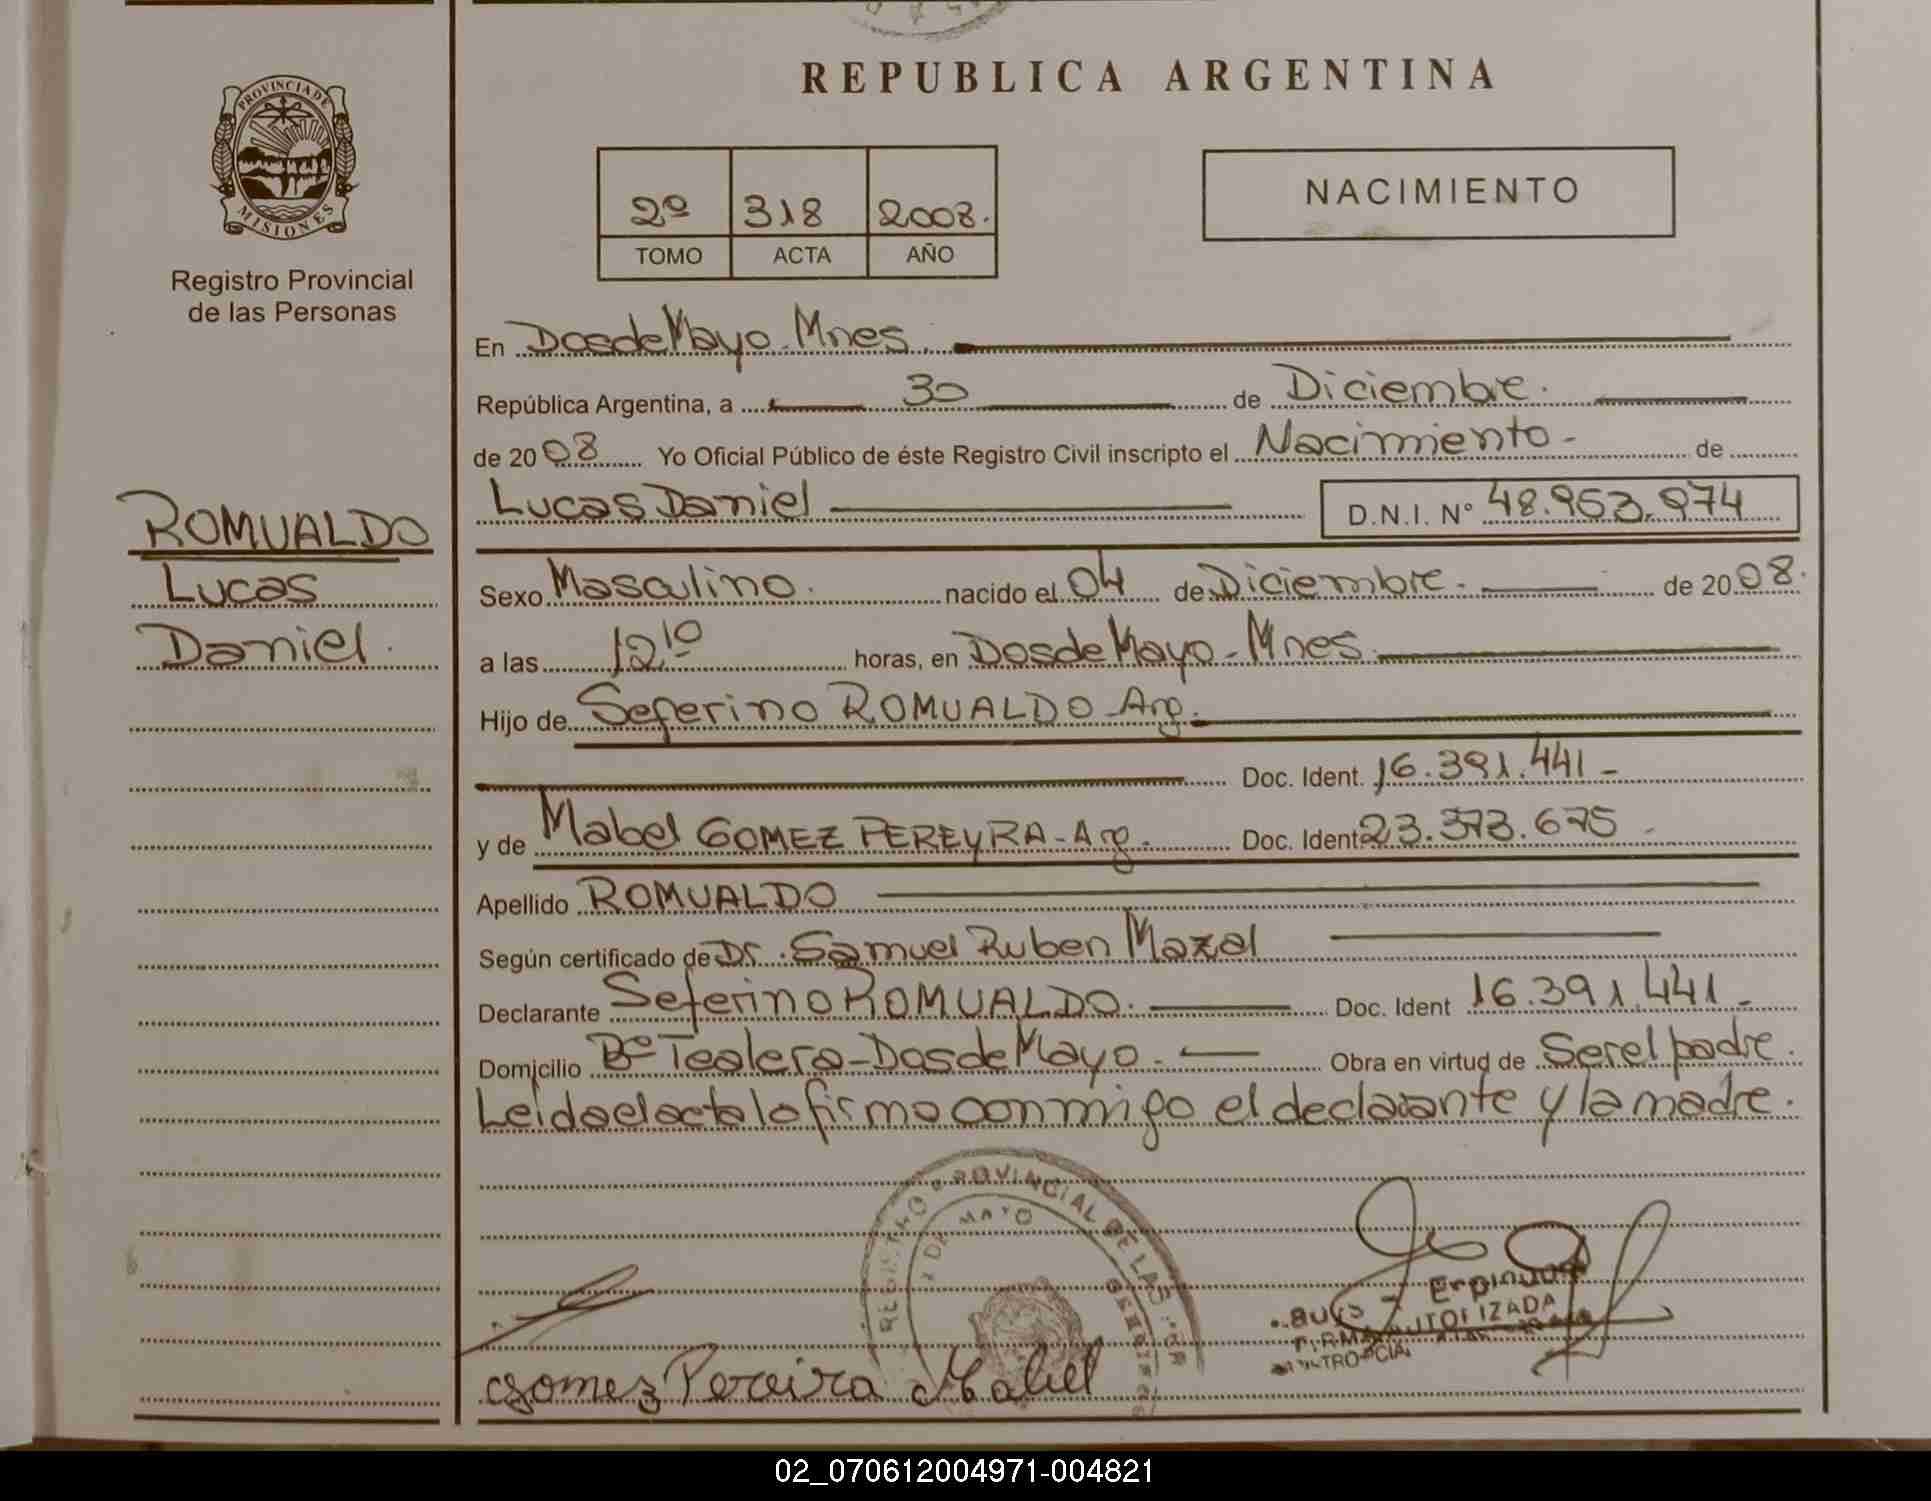 REPUBLICA ARGENTINA
PROVINCIA DE
MISIONES
Registro Provincial
de las Personas
2º 318 2008.
TOMO ACTA AÑO
NACIMIENTO
En Dos de Mayo. Mnes.
República Argentina, a 30 de Diciembre.
de 2008 Yo Oficial Público de éste Registro Civil inscripto el Nacimiento - de
Lucas Daniel D.N.I. Nº 48.953.974
ROMUALDO
Lucas
Daniel.
Sexo Masculino. nacido el 04 de Diciembre. de 2008.
a las 12 10 horas, en Dos de Mayo - Mnes.
Hijo de Seferino ROMUALDO - Arg.
Doc. Ident. 16.391.441 -
y de Mabel GOMEZ PEREYRA - Arg. Doc. Ident 23.373.675 -
Apellido ROMUALDO
Según certificado de Dr. Samuel Ruben Mazal
Declarante Seferino ROMUALDO. Doc. Ident 16.391.441 -
Domicilio Bº Tealera - Dos de Mayo. Obra en virtud de Ser el padre.
Leida el acta la firma conmigo el declarante y la madre.
REGISTRO PROVINCIAL DE LAS
MAYO
AUTORIZADA
Gomez Pereira Mabel
02_070612004971-004821